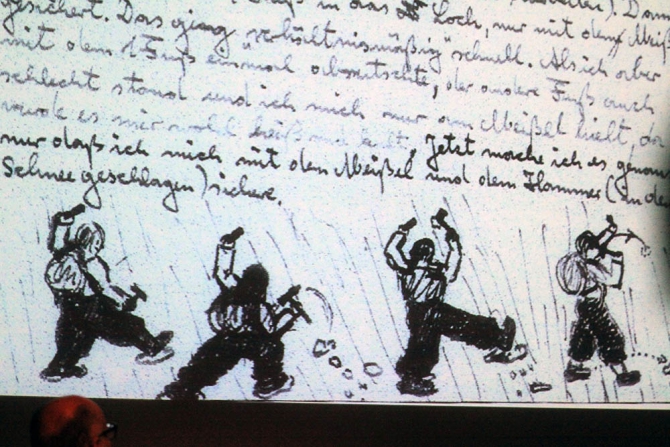 gesichert. Das ging verhältnismäßig schnell. Als ich aber
mit dem 1 Fuß einmal abrutschte, der andere Fuß auch
schlecht stand und ich mich nur am Meißel hielt, da
wurde es mir wohl heiß und kalt. Jetzt mache ich es genau
nur daß ich mich mit dem Meißel und dem Hammer (in de
Schnee geschlagen) sichere.